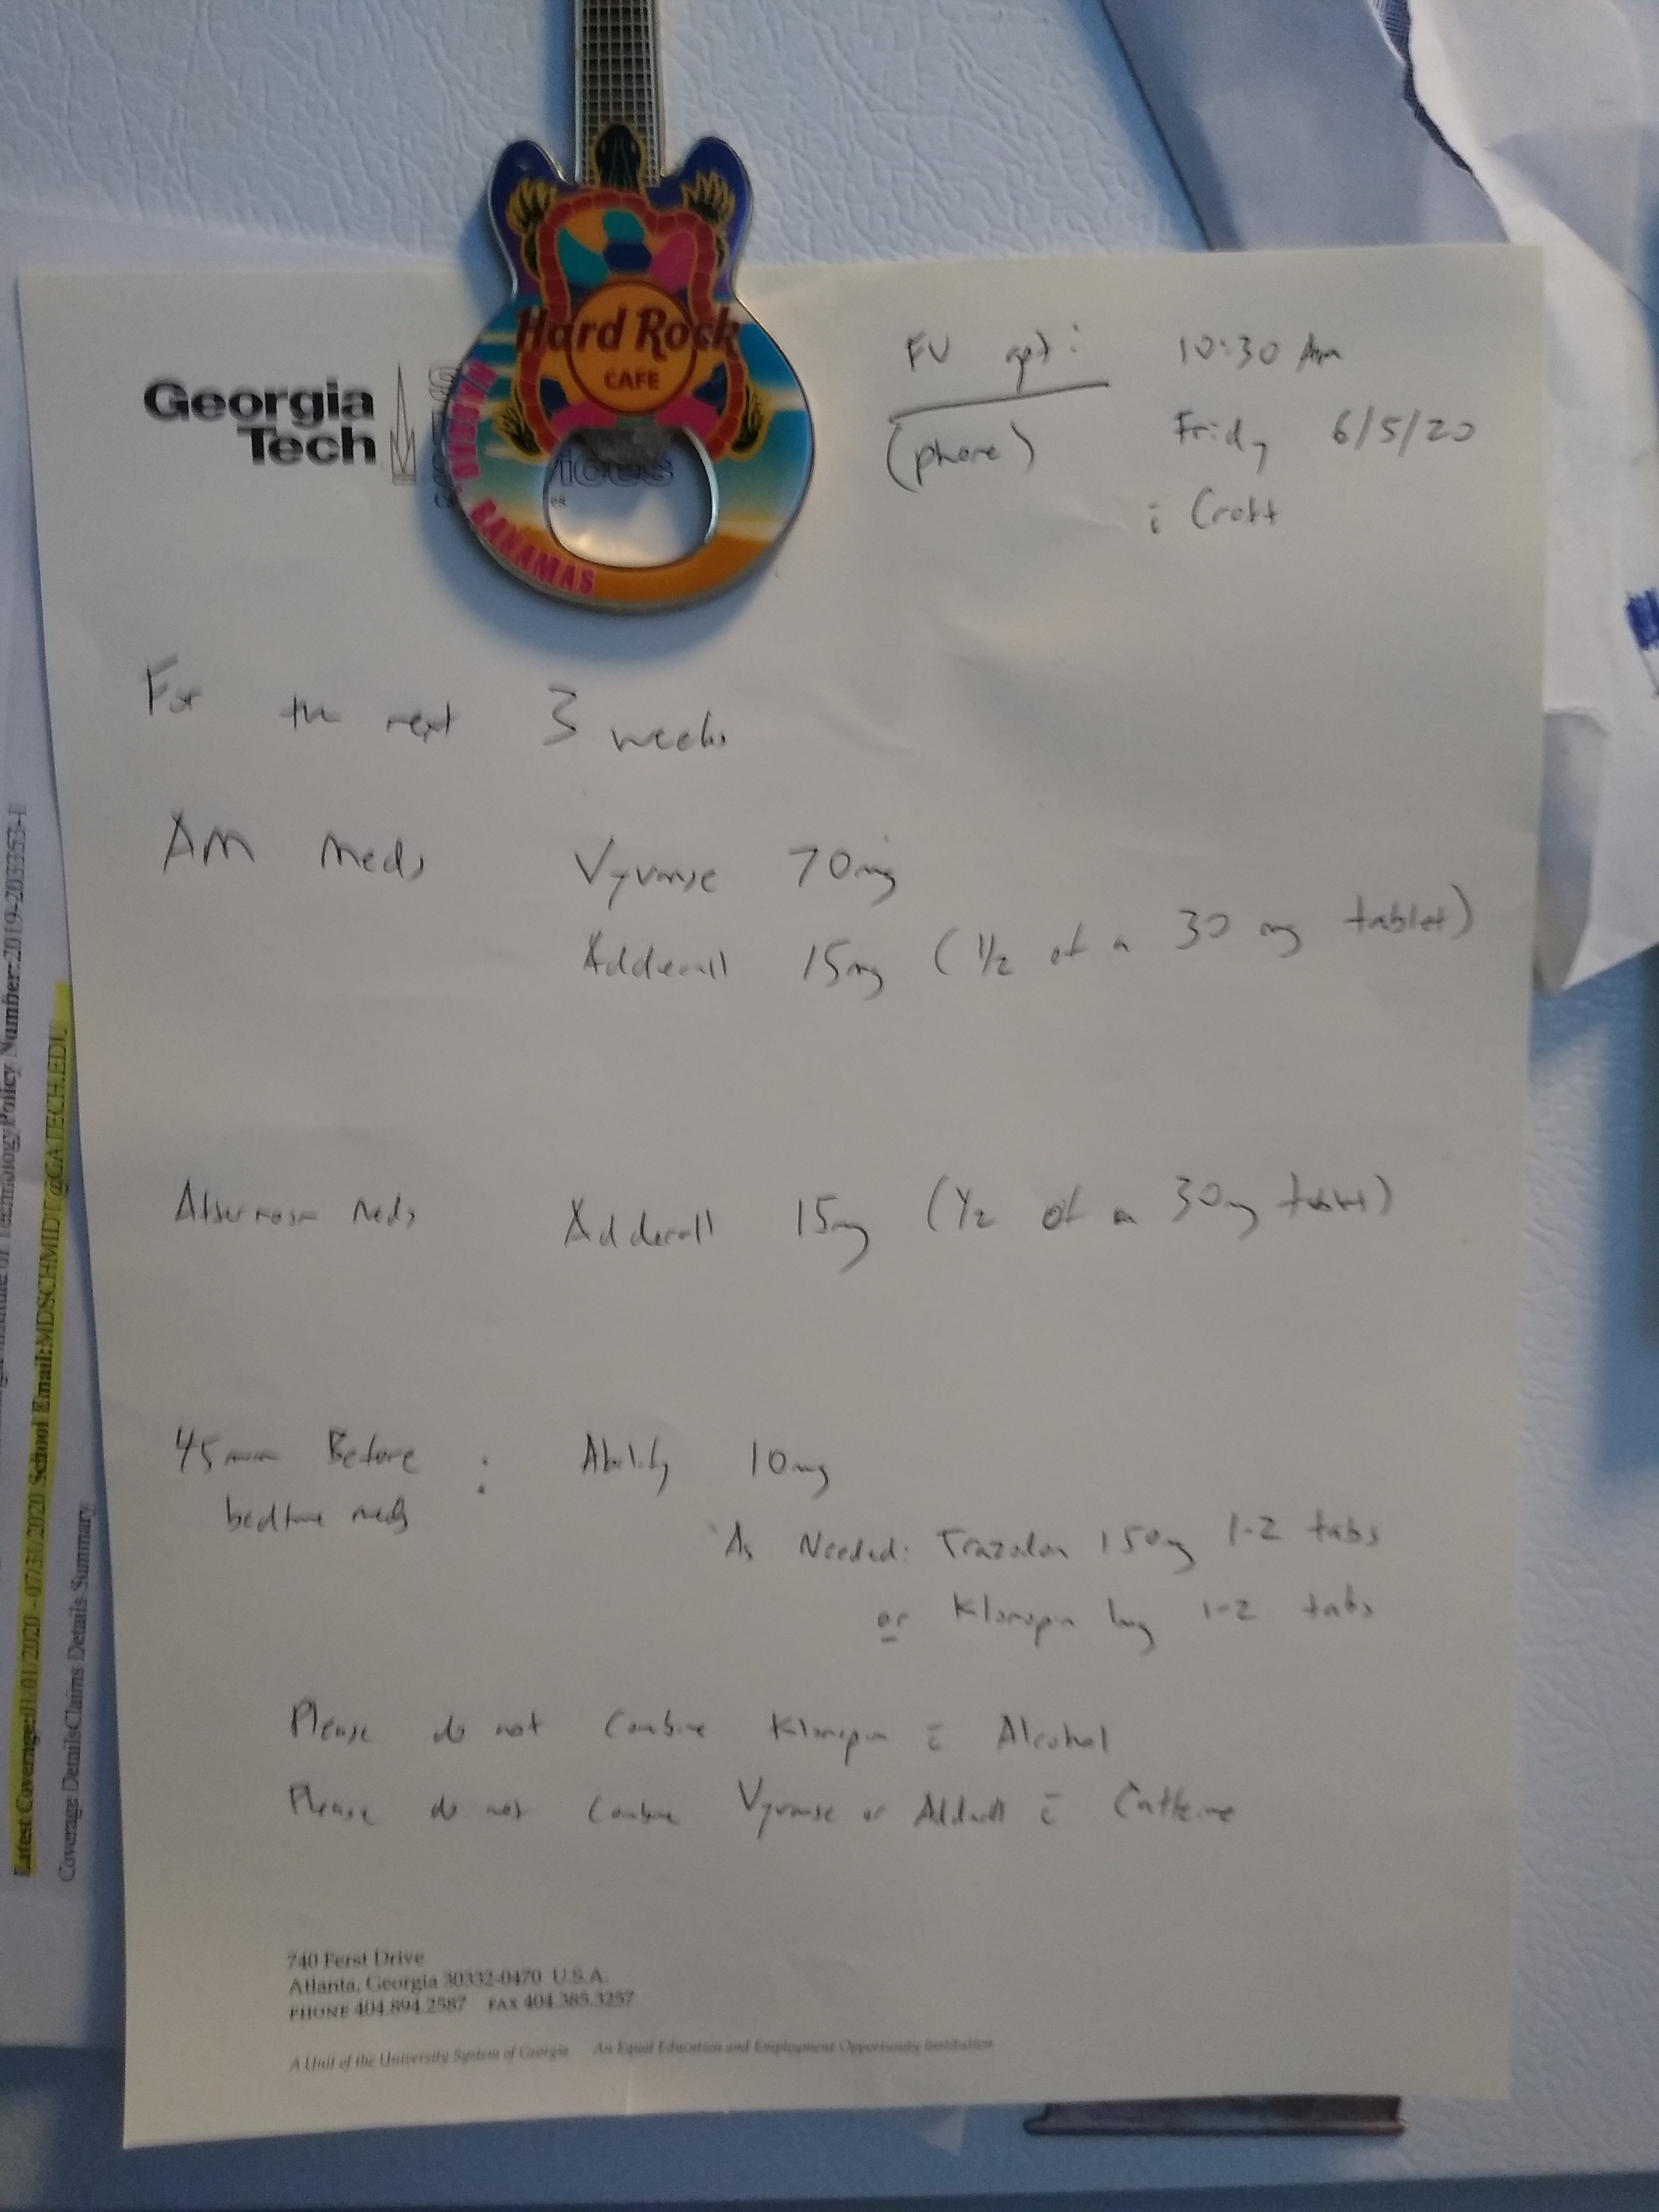 Hard Rock
CAFE
NASSAU
BAHAMAS
Georgia
Tech
ices
FU apt: 10:30 Am
(phone) Friday 6/5/20
c̄ Croft
For the next 3 weeks
AM Meds Vyvanse 70mg
Adderall 15mg (1/2 of a 30 mg tablet)
Afternoon Meds Adderall 15mg (1/2 of a 30mg tablet)
45 min Before : Abilify 10mg
bedtime meds
As Needed: Trazadon 150mg 1-2 tabs
or Klonopin 1mg 1-2 tabs
Please do not combine Klonopin c̄ Alcohol
Please do not combine Vyvanse or Adderall c̄ Caffeine
740 Ferst Drive
Atlanta, Georgia 30332-0470 U.S.A.
PHONE 404.894.2587 FAX 404.385.3257
A Unit of the University System of Georgia An Equal Education and Employment Opportunity Institution
Technology Policy Number:2019-203353-1
Latest Coverage:01/01/2020 - 07/31/2020 School Email:MDSCHMIDT@GATECH.EDU
Coverage DetailsClaims Details Summary